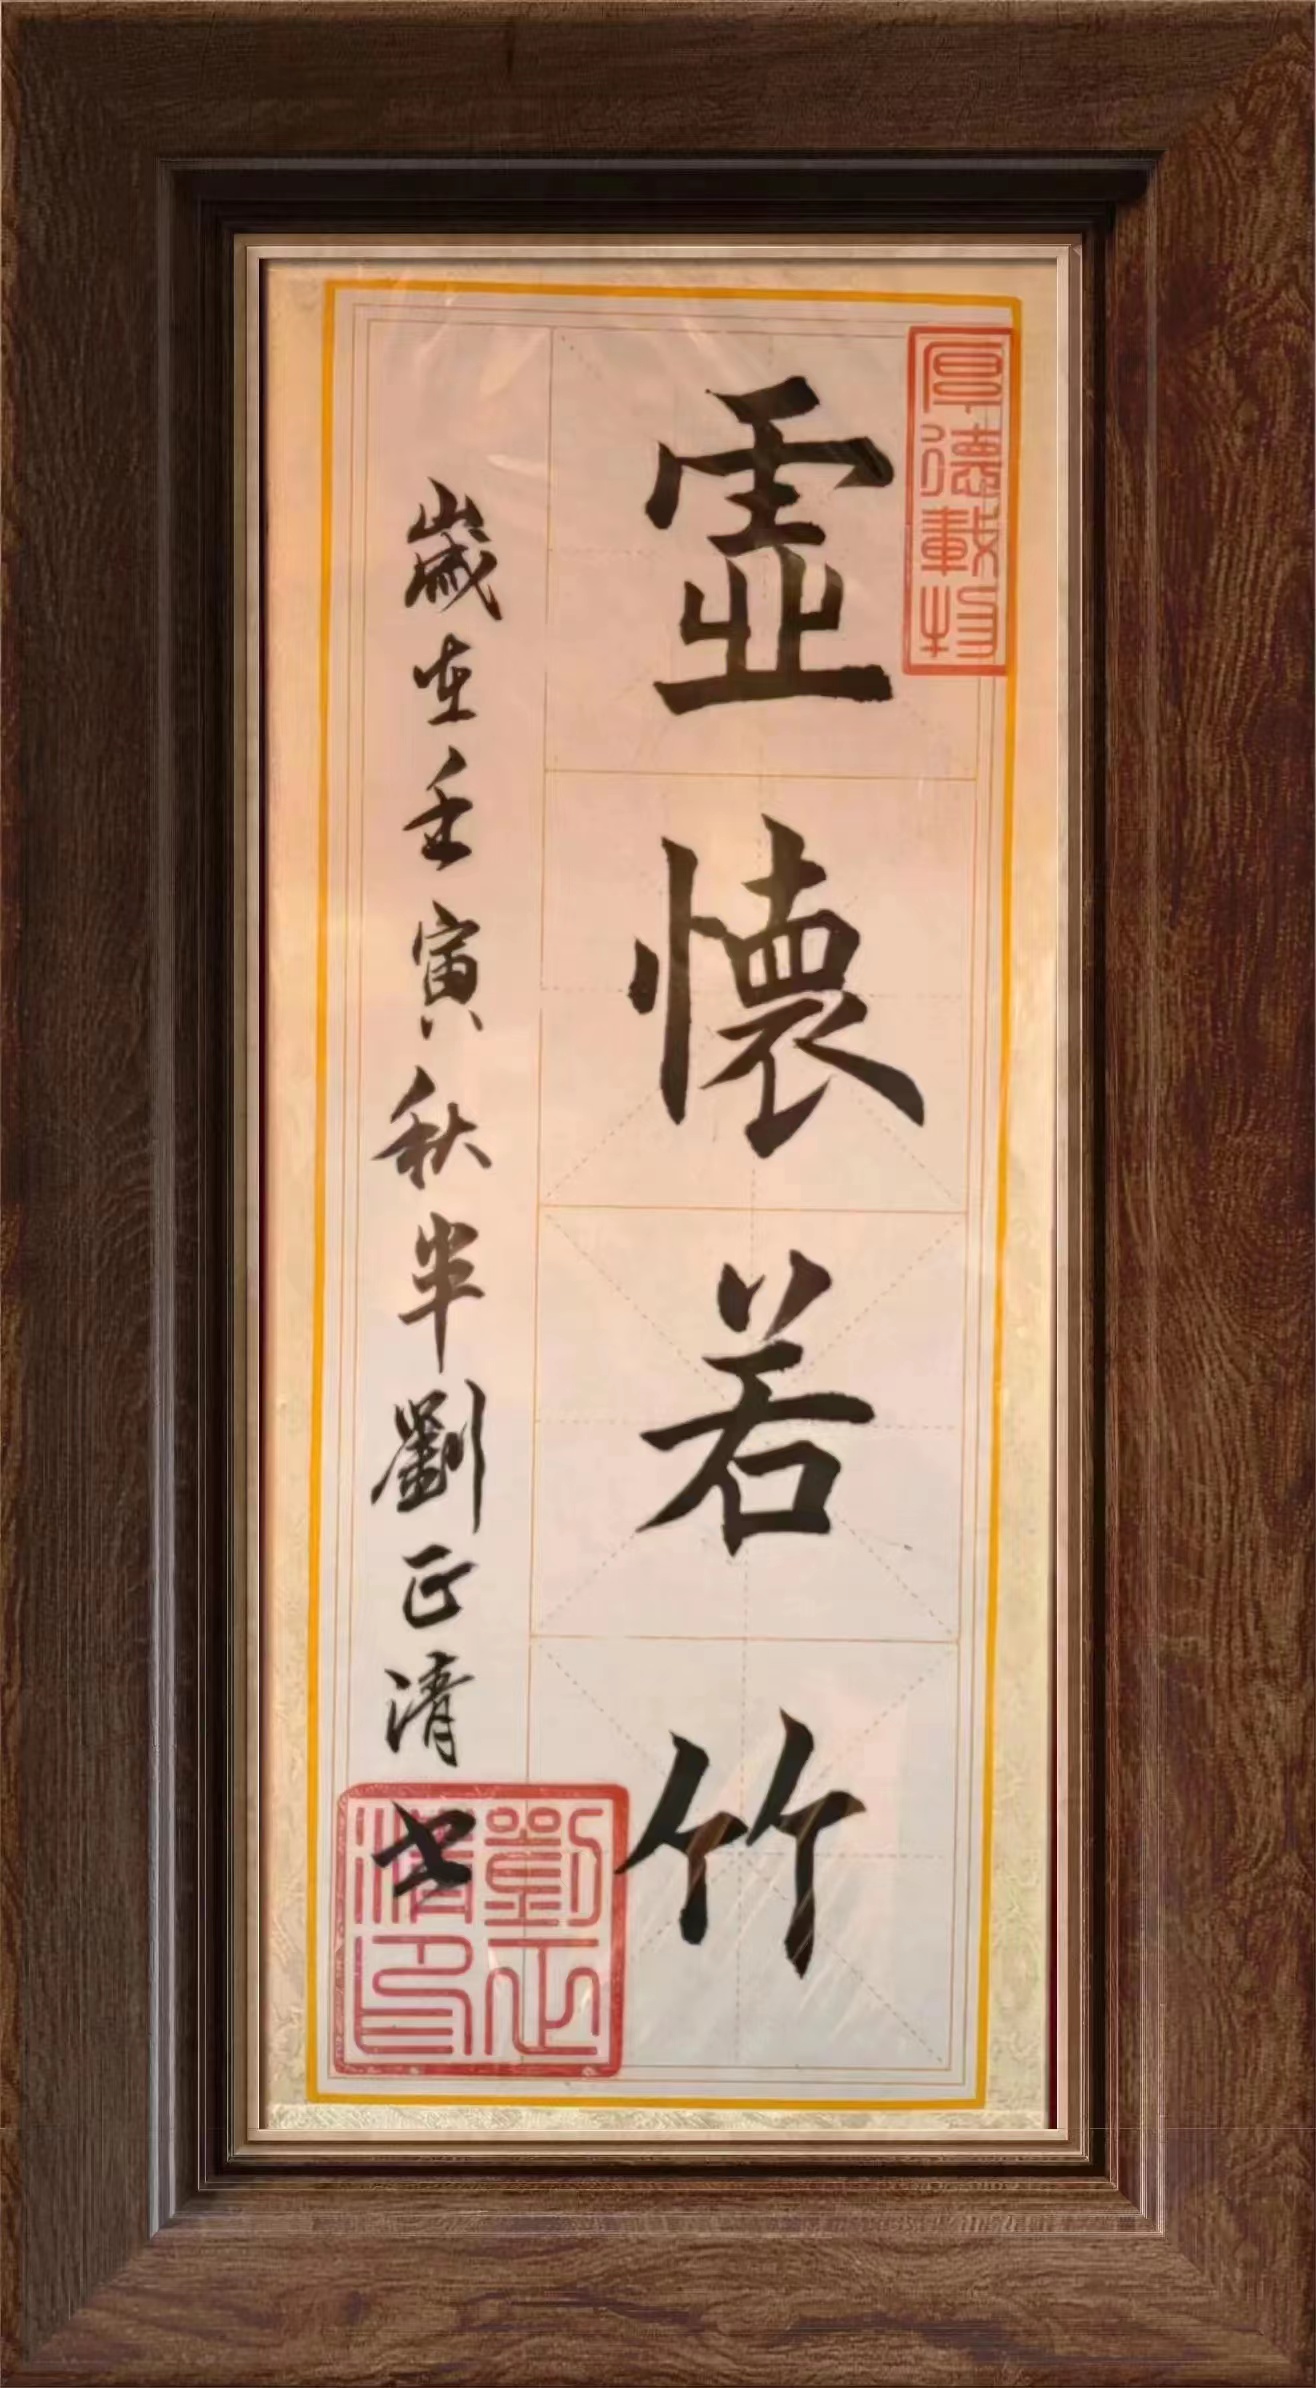 厚德載物
虛懷若竹
歲在壬寅秋半劉正清書
劉正清印